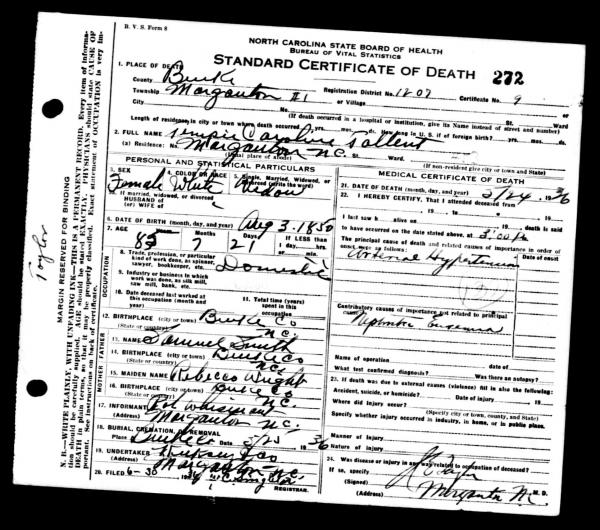 B. V. S. Form 8
NORTH CAROLINA STATE BOARD OF HEALTH
BUREAU OF VITAL STATISTICS
STANDARD CERTIFICATE OF DEATH 272
1. PLACE OF DEATH
County Burke Registration District No. 1207 Certificate No. 9
Township Morganton #1 or Village
City No. St. Ward
(If death occurred in a hospital or institution, give its Name instead of street and number)
Length of residence in city or town where death occurred yrs. mos. ds. How long in U. S. if of foreign birth? yrs. mos. ds.
2. FULL NAME Tempie Caroline Tallent
(a) Residence: No. Morganton N.C. St. Ward
(Usual place of abode) (If non-resident give city or town and State)
PERSONAL AND STATISTICAL PARTICULARS
3. SEX 4. COLOR OR RACE 5. Single, Married, Widowed, or Divorced (write the word)
Female White Widow
If married, widowed, or divorced
HUSBAND of
(or) WIFE of
6. DATE OF BIRTH (month, day, and year) Aug 3. 1850
7. AGE Years Months Days If LESS than
85 7 21 1 day, hrs.
or min.
OCCUPATION
8. Trade, profession, or particular kind of work done, as spinner, sawyer, bookkeeper, etc. Domestic
9. Industry or business in which work was done, as silk mill, saw mill, bank, etc.
10. Date deceased last worked at this occupation (month and year)
11. Total time (years) spent in this occupation
12. BIRTHPLACE (city or town) Burke Co
(State or country) N.C.
FATHER
13. NAME Samuel Smith
14. BIRTHPLACE (city or town) Burke Co
(State or country) N.C.
MOTHER
15. MAIDEN NAME Rebecco Wright
16. BIRTHPLACE (city or town) Burke Co
(State or country) N.C.
17. INFORMANT
(Address) Morganton N.C.
18. BURIAL, CREMATION, OR REMOVAL
Place Date 3/25 1936
19. UNDERTAKER
(Address) Morganton N.C.
20. FILED 6-30 1936
REGISTRAR.
MEDICAL CERTIFICATE OF DEATH
21. DATE OF DEATH (month, day, and year) 3/24 1936
22. I HEREBY CERTIFY, That I attended deceased from
, 19 , to , 19
I last saw h alive on , 19 , death is said
to have occurred on the date stated above, at m.
The principal cause of death and related causes of importance in order of onset were as follows: Date of onset
Arterial Hypertension
Contributory causes of importance not related to principal cause:
Name of operation Date of
What test confirmed diagnosis? Was there an autopsy?
23. If death was due to external causes (violence) fill in also the following:
Accident, suicide, or homicide? Date of injury 19
Where did injury occur?
(Specify city or town, county, and State)
Specify whether injury occurred in industry, in home, or in public place.
Manner of injury
Nature of injury
24. Was disease or injury in any way related to occupation of deceased?
If so, specify
(Signed) M. D.
(Address) Morganton N.C.
Taylor
MARGIN RESERVED FOR BINDING
N. B.—WRITE PLAINLY, WITH UNFADING INK—THIS IS A PERMANENT RECORD. Every item of information should be carefully supplied. AGE should be stated EXACTLY. PHYSICIANS should state CAUSE OF DEATH in plain terms, so that it may be properly classified. Exact statement of OCCUPATION is very important. See instructions on back of certificate.